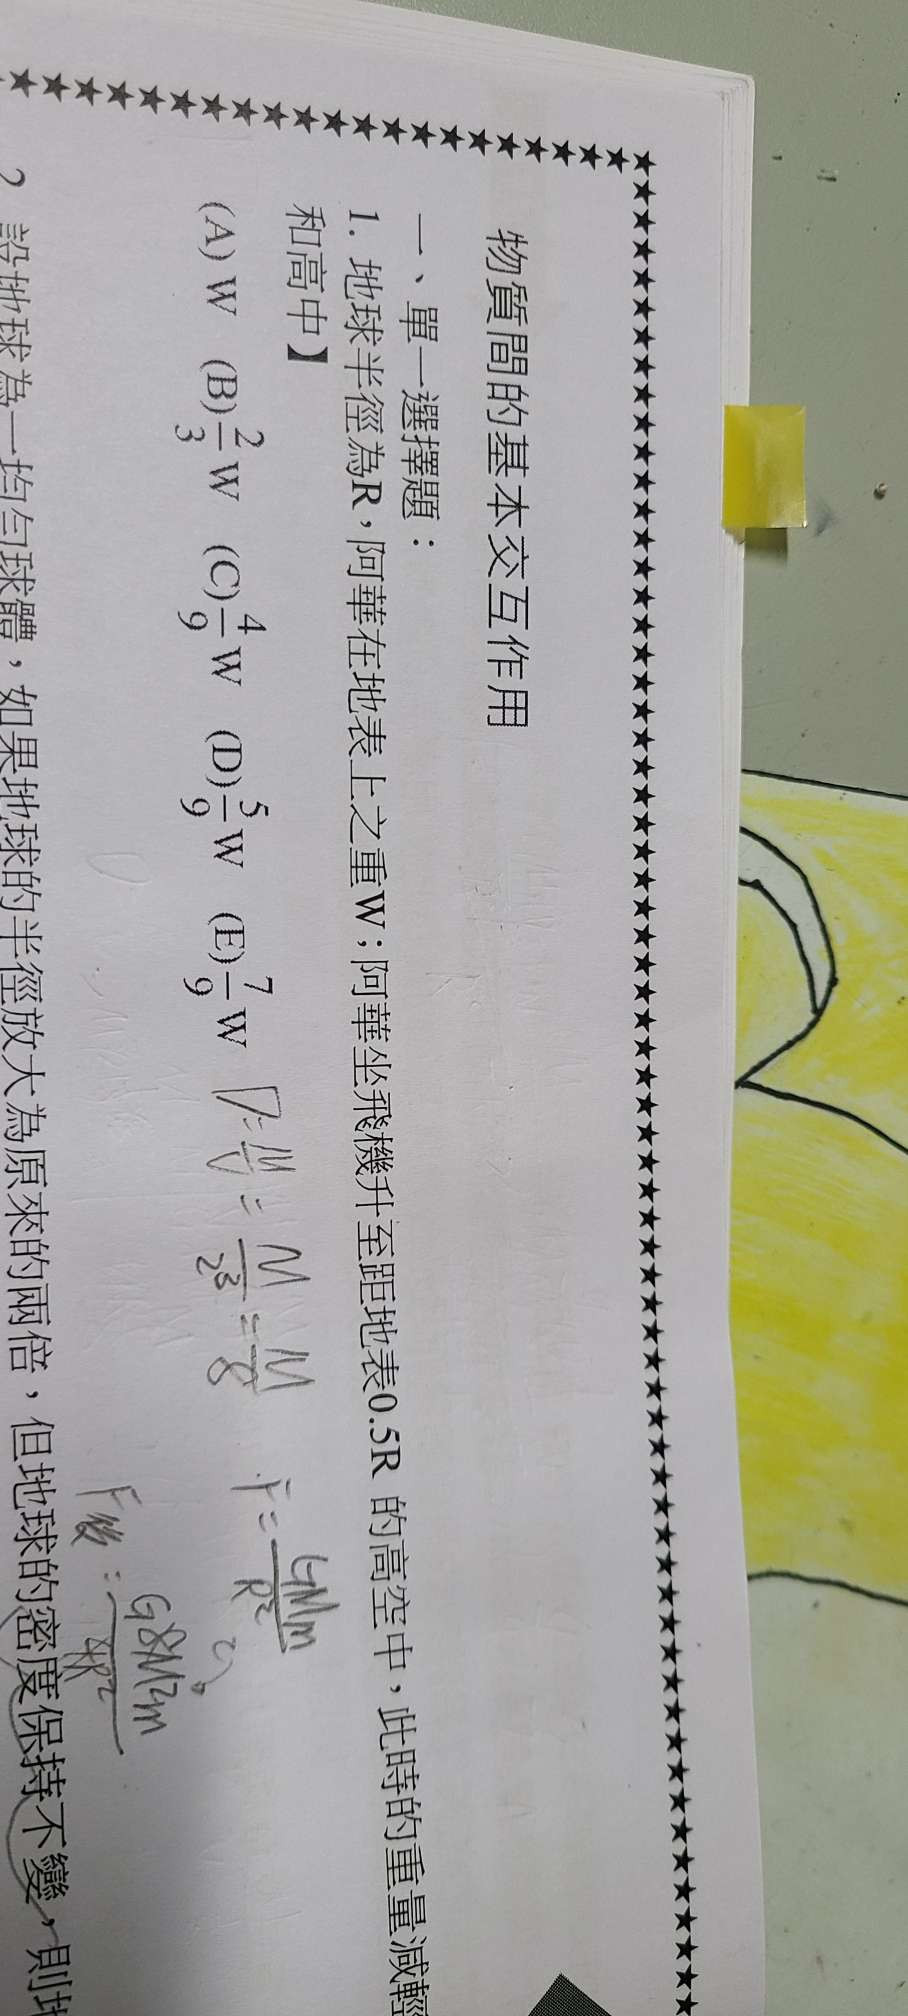 物質間的基本交互作用
一、單一選擇題：
1. 地球半徑為R，阿華在地表上之重W；阿華坐飛機升至距地表0.5R 的高空中，此時的重量減輕
和高中】
(A) W (B) 2/3 W (C) 4/9 W (D) 5/9 W (E) 7/9 W
D = M/V = M/2³ = M/8
F = GMm/R²
F後 = G8M2m/4R²
2 設地球為一均勻球體，如果地球的半徑放大為原來的兩倍，但地球的密度保持不變，則地